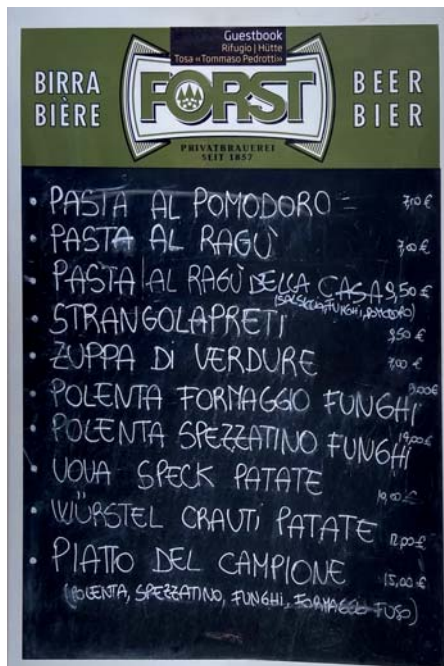 Guestbook
Rifugio | Hütte
Tosa «Tommaso Pedrotti»
BIRRA
BIÈRE
FORST
BEER
BIER
PRIVATBRAUEREI
SEIT 1857
• PASTA AL POMODORO =
• PASTA AL RAGÙ
• PASTA AL RAGÙ DELLA CASA 9,50 €
(SALSICCIA, FUNGHI, POMODORO)
• STRANGOLAPRETI 9,50 €
• ZUPPA DI VERDURE 7,00 €
• POLENTA FORMAGGIO FUNGHI
• POLENTA SPEZZATINO FUNGHI
• UOVA SPECK PATATE
• WÜRSTEL CRAUTI PATATE 12,00 €
• PIATTO DEL CAMPIONE 15,00 €
(POLENTA, SPEZZATINO, FUNGHI, FORMAGGIO FUSO)